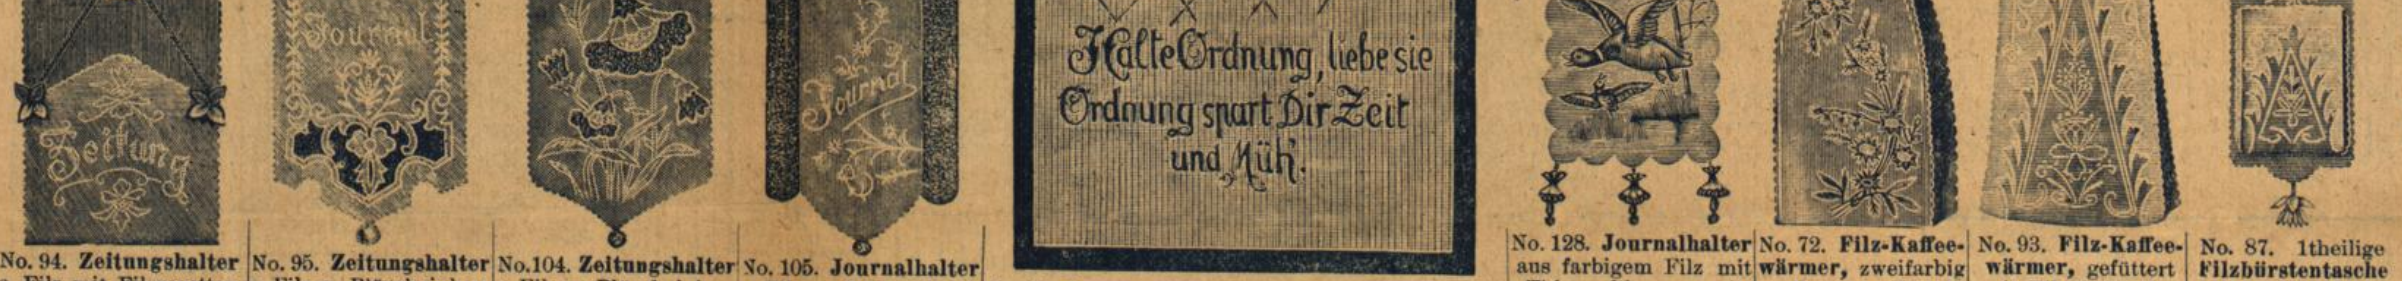 Journal
Zeitung
Journal
Halte Ordnung, liebe sie
Ordnung spart Dir Zeit
und Müh'.
No. 94. Zeitungshalter
No. 95. Zeitungshalter
No. 104. Zeitungshalter
No. 105. Journalhalter
No. 128. Journalhalter
aus farbigem Filz mit
No. 72. Filz-Kaffee-
wärmer, zweifarbig
No. 93. Filz-Kaffee-
wärmer, gefüttert
No. 87. 1theilige
Filzbürstentasche